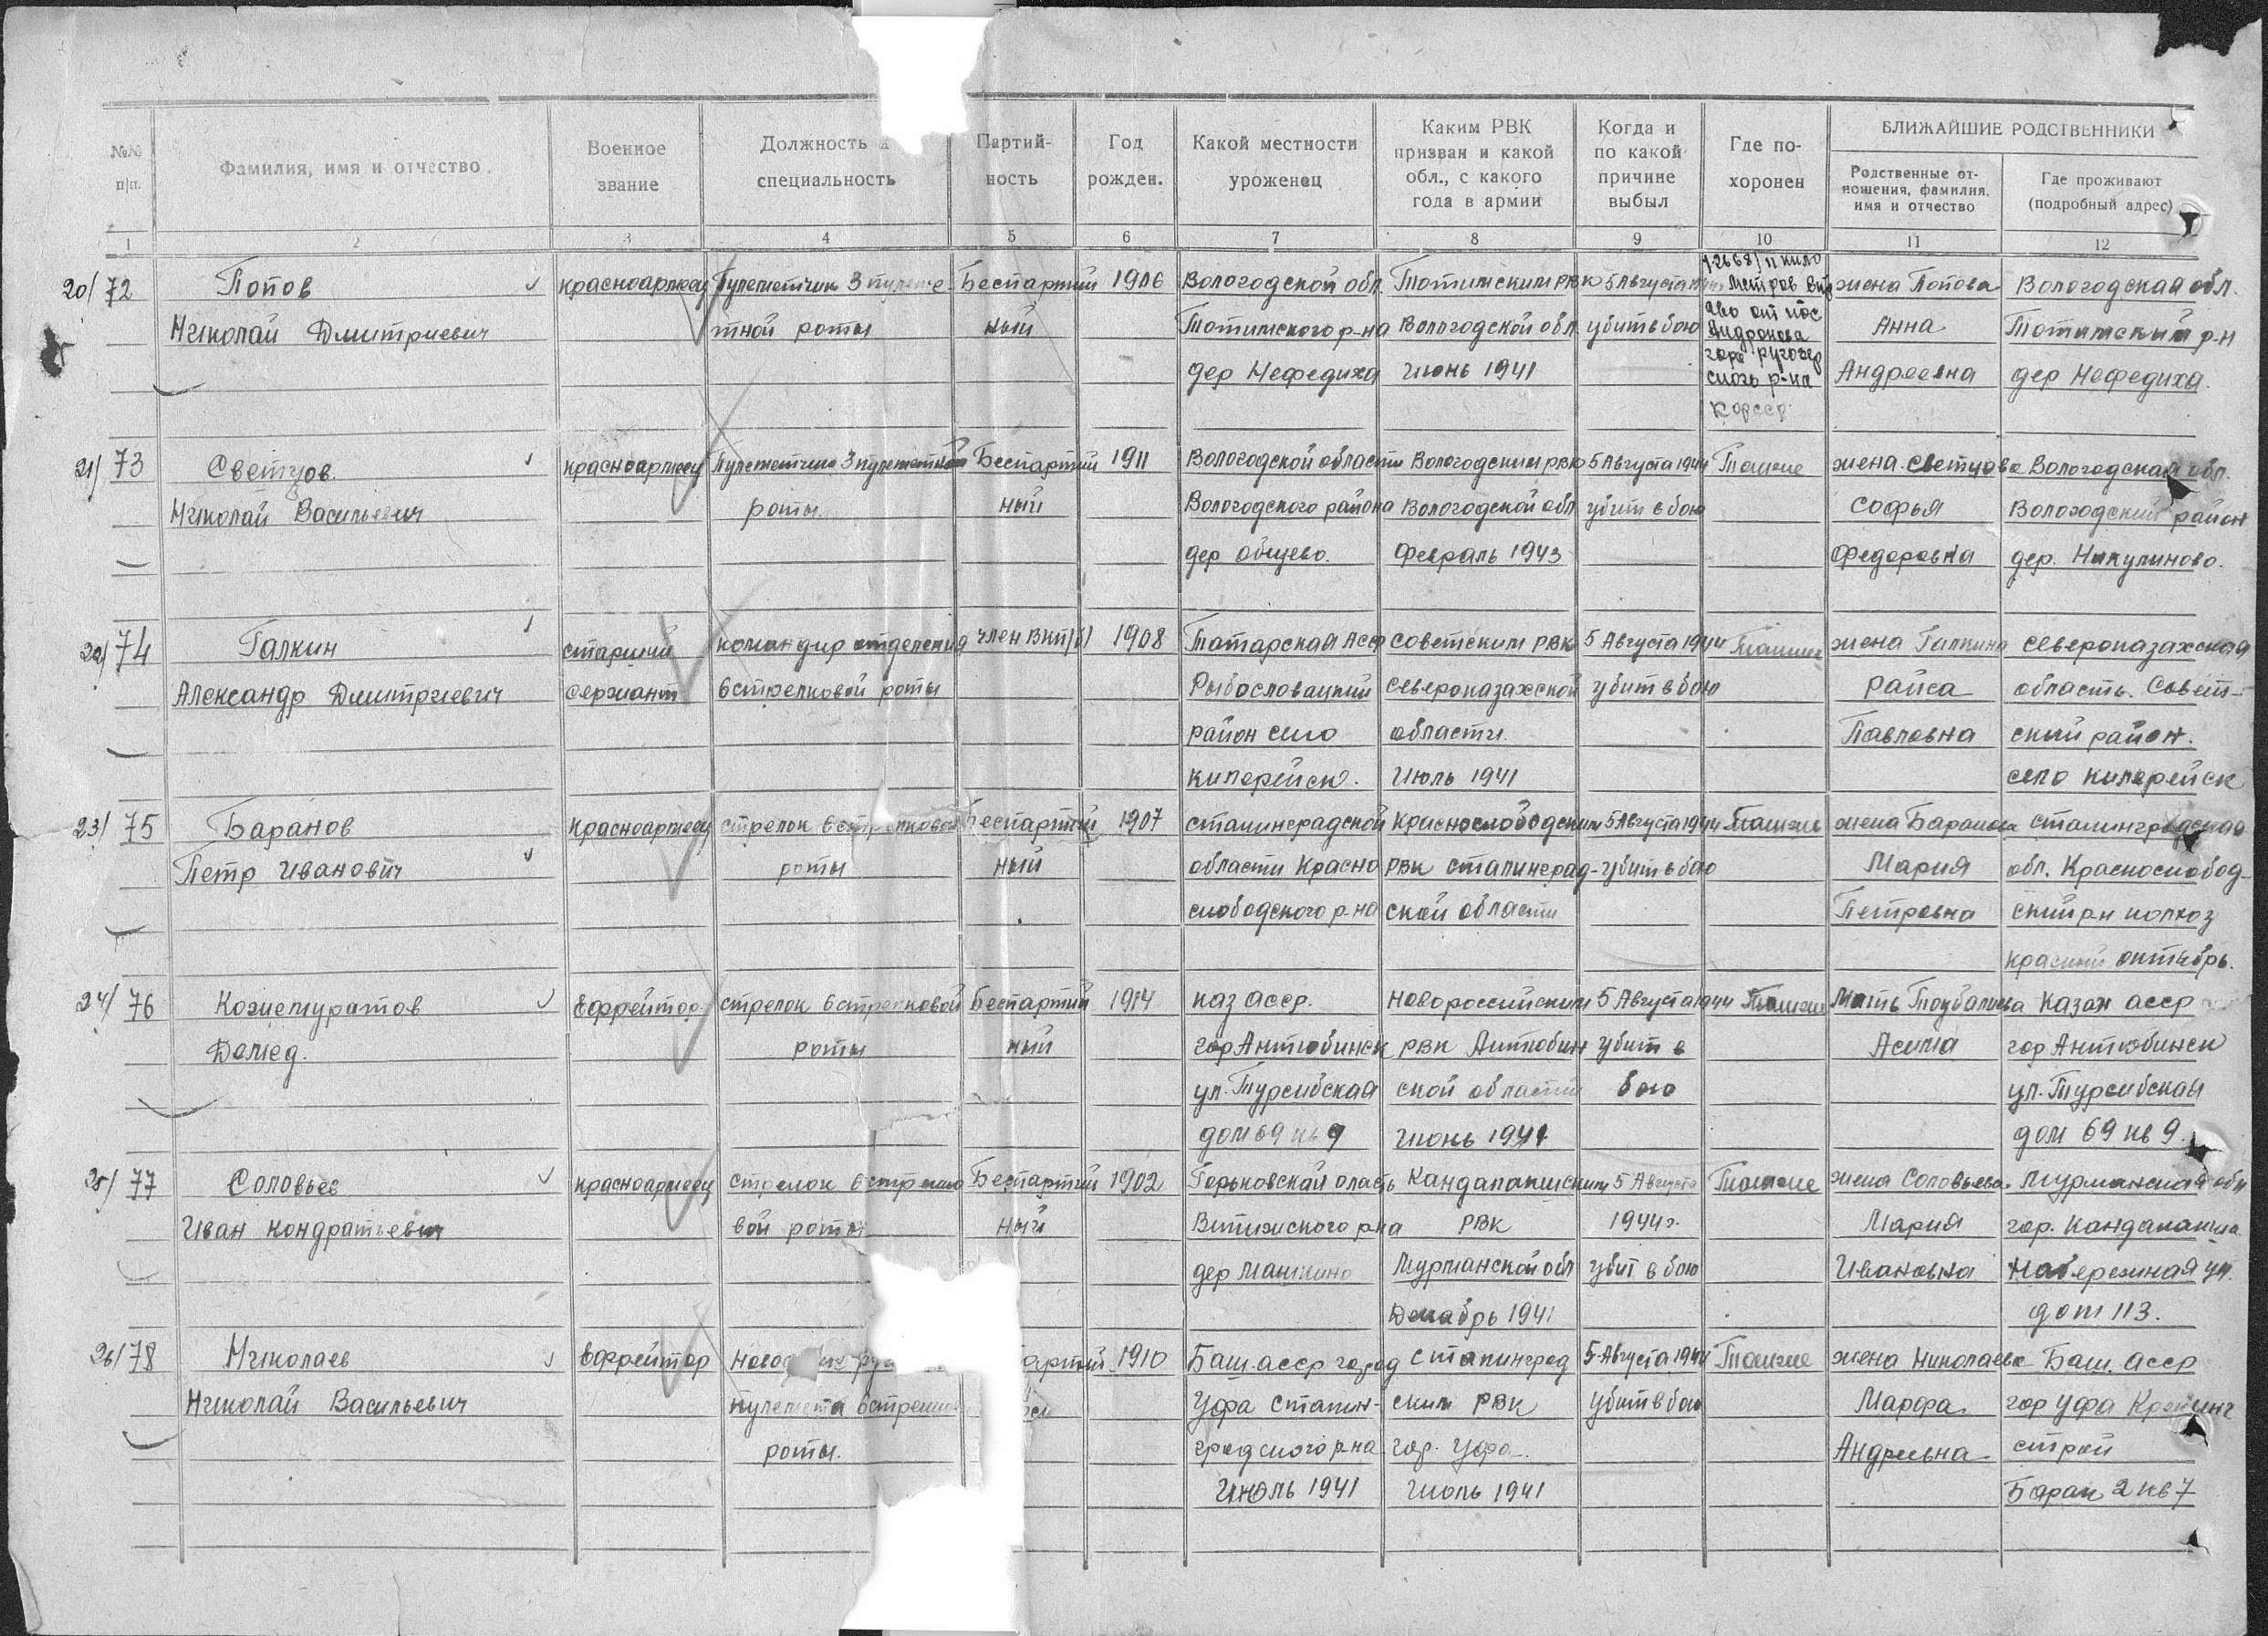 №№ п/п.
Фамилия, имя и отчество
Военное звание
Должность и специальность
Партий-ность
Год рожден.
Какой местности уроженец
Каким РВК призван и какой обл., с какого года в армии
Когда и по какой причине выбыл
Где по-хоронен
БЛИЖАЙШИЕ РОДСТВЕННИКИ
Родственные от-ношения, фамилия, имя и отчество
Где проживают (подробный адрес)
1 2 3 4 5 6 7 8 9 10 11 12
20/72 Попов красноармеец Пулеметчик 3 пулеме Беспартий 1906 Вологодской обл. Тотемским РВК 5 Августа жена Попова Вологодская обл.
Николай Дмитриевич тной роты ный Тотемского р-на Вологодской обл убит в бою Анна Тотемский р-н
дер Нефедиха Июнь 1941 Андреевна дер Нефедиха.
12668/11 кило
метров
от пос
Андронова
гора ругозер
ского р-на
Кфсср.
21/73 Светцов. красноармеец Пулеметчик 3 пулеметной Беспартий 1911 Вологодской области Вологодским РВК 5 Августа 1944 Там же жена Светцова Вологодская обл.
Николай Васильевич роты. ный Вологодского района Вологодской обл убит в бою Софья Вологодский район
дер общево. Февраль 1943 Федоровна дер. Никулиново.
22/74 Галкин старший командир отделения член ВКП(б) 1908 Татарская Асср Советским РВК 5 Августа 1944 Там же жена Галкина Североказахская
Александр Дмитриевич сержант 6 стрелковой роты Рыбослованкий Североказахской убит в бою Раиса область. Совет-
район село области. Павловна ский район.
киперейск. Июль 1941 село киперейск
23/75 Баранов красноармеец стрелок 6 стрелковой Беспартий 1907 сталинградской Краснослободским 5 Августа 1944 Там же жена Баранова сталинградская
Петр Иванович роты ный области Красно РВК сталинград- убит в бою Мария обл. Краснослобод-
слободского р-на ской области Петровна ский р-н колхоз
красный октябрь.
24/76 Кожемуратов Ефрейтор стрелок 6 стрелковой Беспартий 1914 каз асср. Новороссийским 5 Августа 1944 Там же Мать Казах асср
Демед. роты ный гор Актюбинск РВК Актюбин убит в Асима гор Актюбинск
ул. Турсибская ской области бою ул. Турсибская
дом 69 кв 9 Июнь 1941 дом 69 кв 9.
25/77 Соловьев красноармеец стрелок 6 стрелко Беспартий 1902 Горьковской оласть Кандалакшским 5 Августа Там же жена Соловьева Мурманская обл
Иван Кондратьевич вой роты ный р-на РВК 1944 г. Мария гор. Кандалакша
дер Мурманской обл убит в бою Ивановна Набережная ул.
Декабрь 1941 дом 113.
26/78 Николаев Ефрейтор артий 1910 Баш. асср город сталинград 5 Августа 1944 Там же жена Николаева Баш. асср
Николай Васильевич пулемета 6 стрелко Уфа сталин- ским РВК убит в бою Марфа гор Уфа
роты. градского р-на гор. Уфа. Андреевна строй
Июль 1941 Июль 1941 Барак 2 кв 7